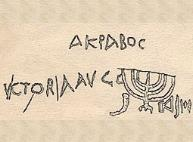 ΑΚΡΑΒΟC
VCTORIAAVG